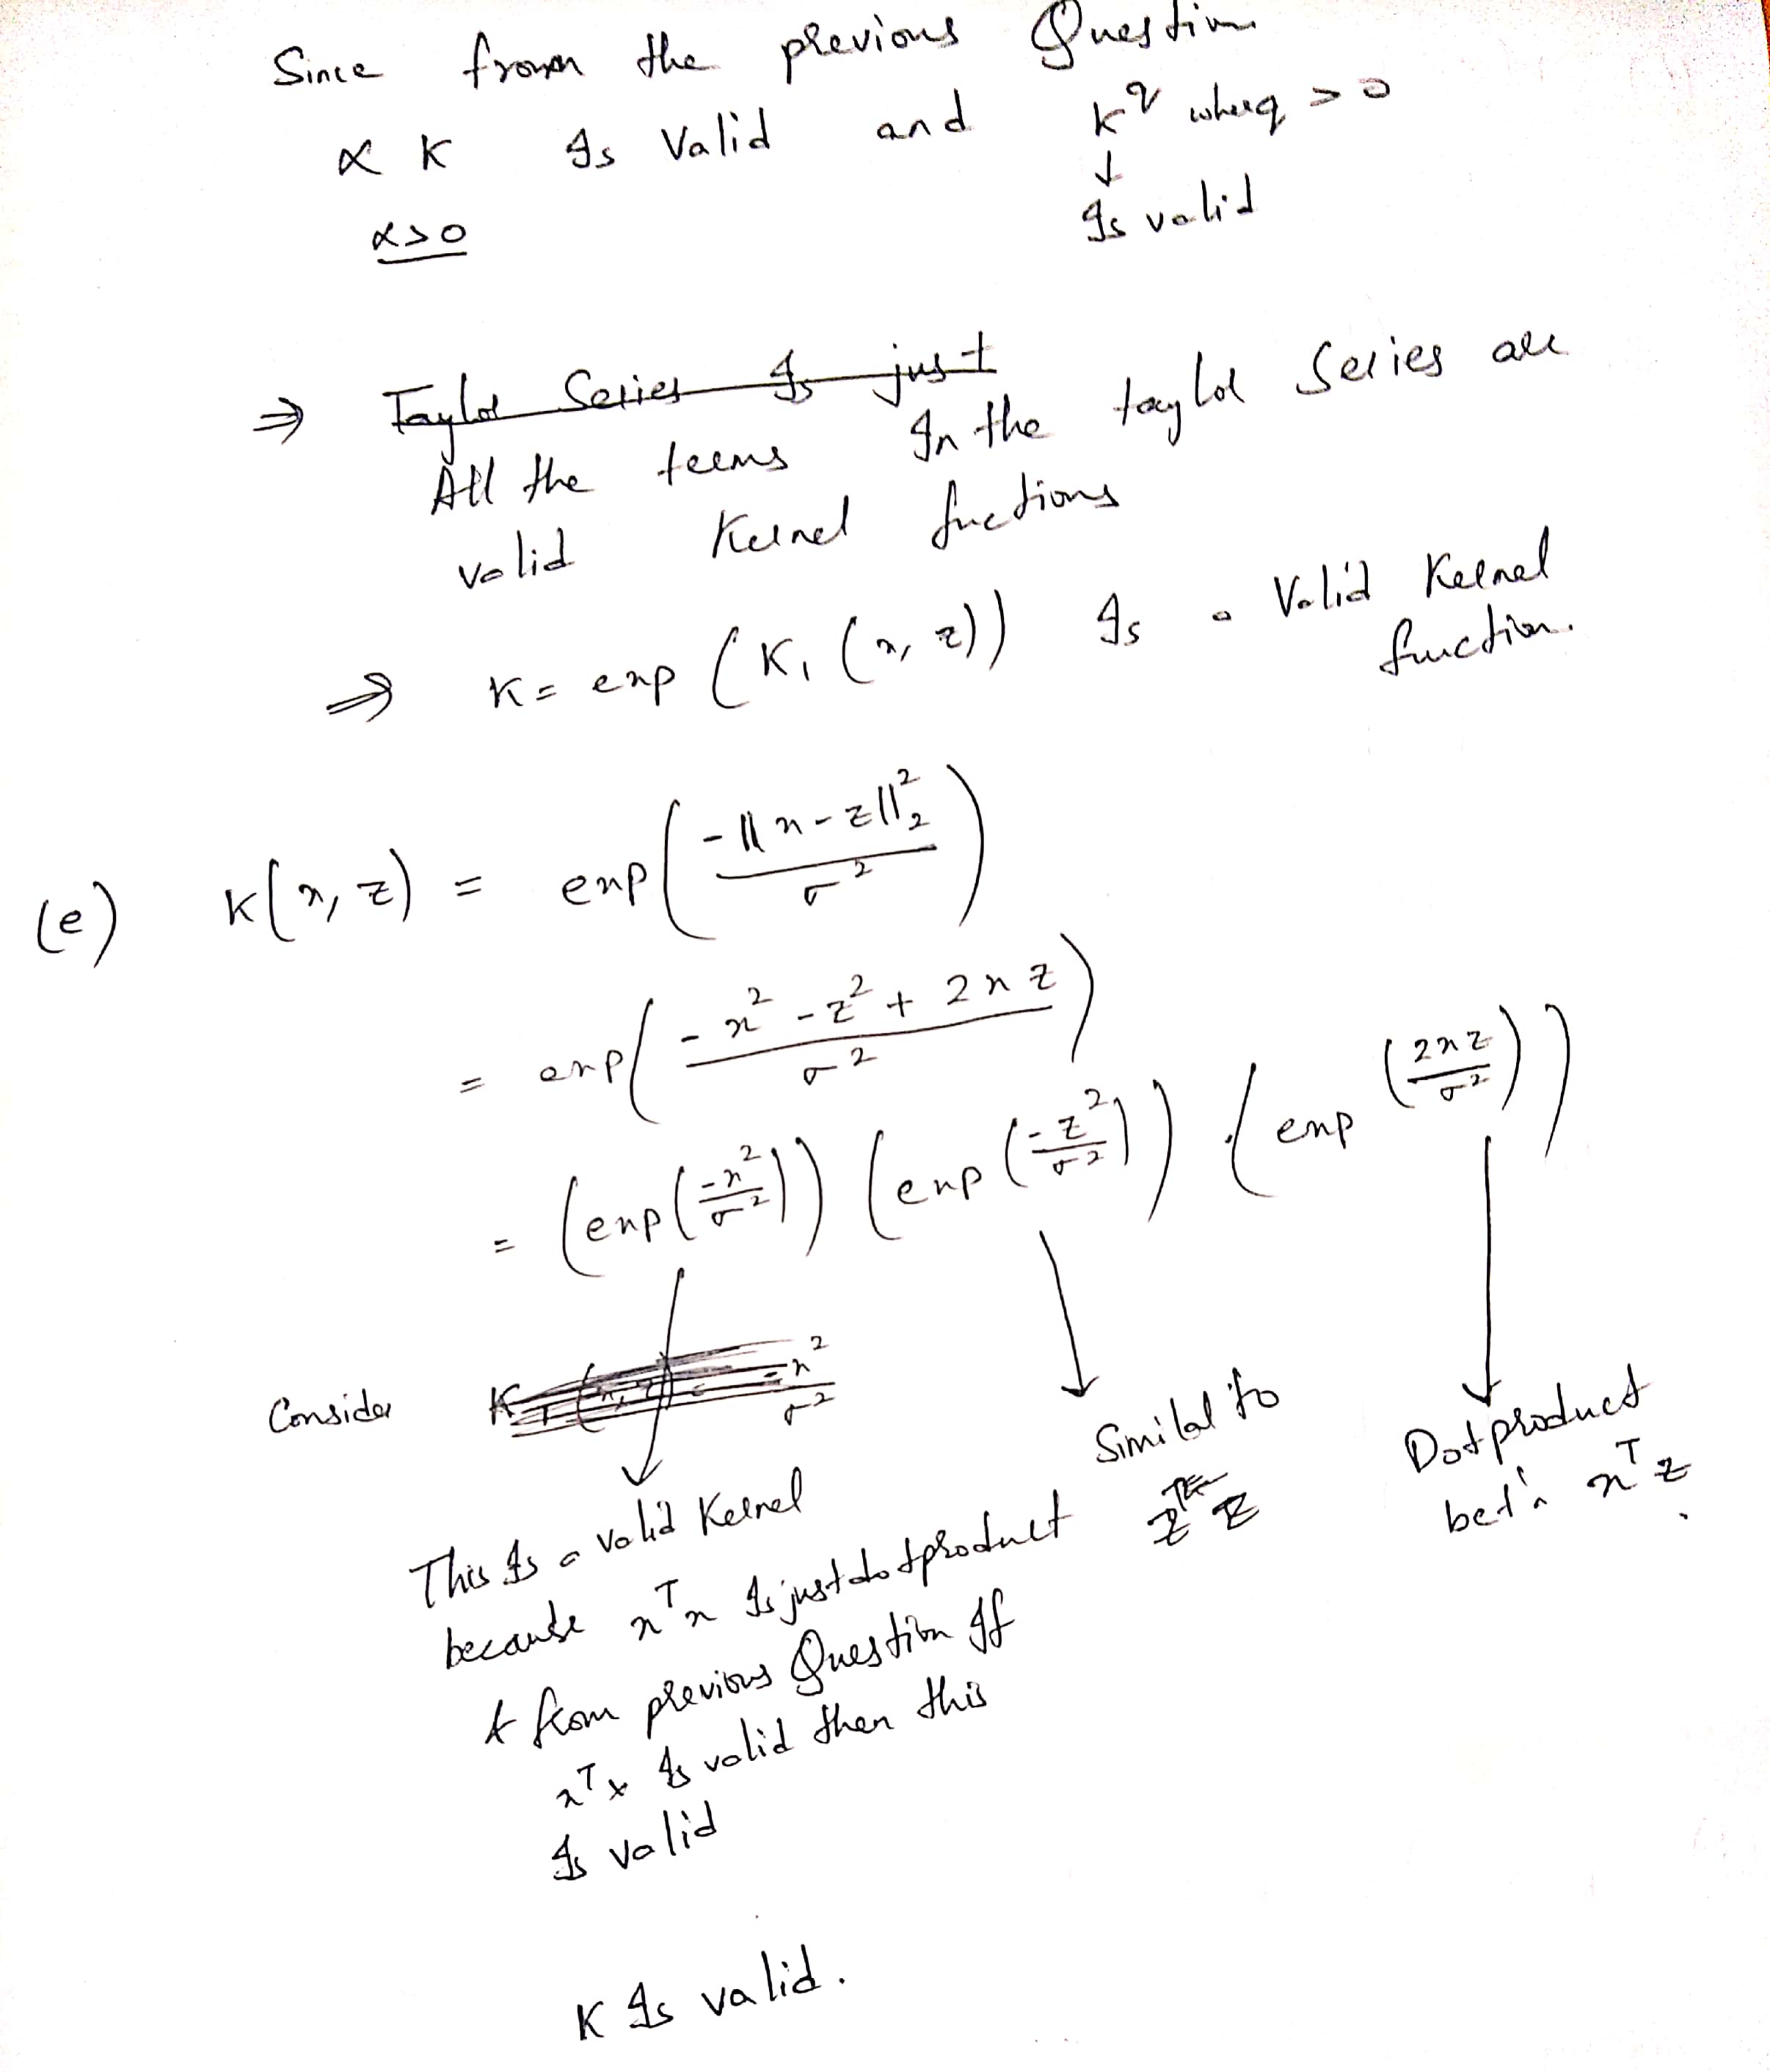 Since from the previous Question
α K Is Valid and K^q where q > 0
α>0 ↓
Is valid
⇒ Taylor Series Is just
All the terms In the taylor Series are
valid Kernel fuctions
⇒ K = exp (K₁ (x, z)) Is a Valid Kernel
function.
(e) K(x, z) = exp( -||x-z||₂² / σ² )
= exp( (-x² - z² + 2xz) / σ² )
= (exp(-x²/σ²)) (exp(-z²/σ²)) · (exp(2xz/σ²))
Consider
This Is a valid Kernel
because xᵀx Is just dotproduct
& from previous Question If
xᵀx Is valid then this
Is valid
Similar to
Dotproduct
bet'n xᵀz.
K Is valid.